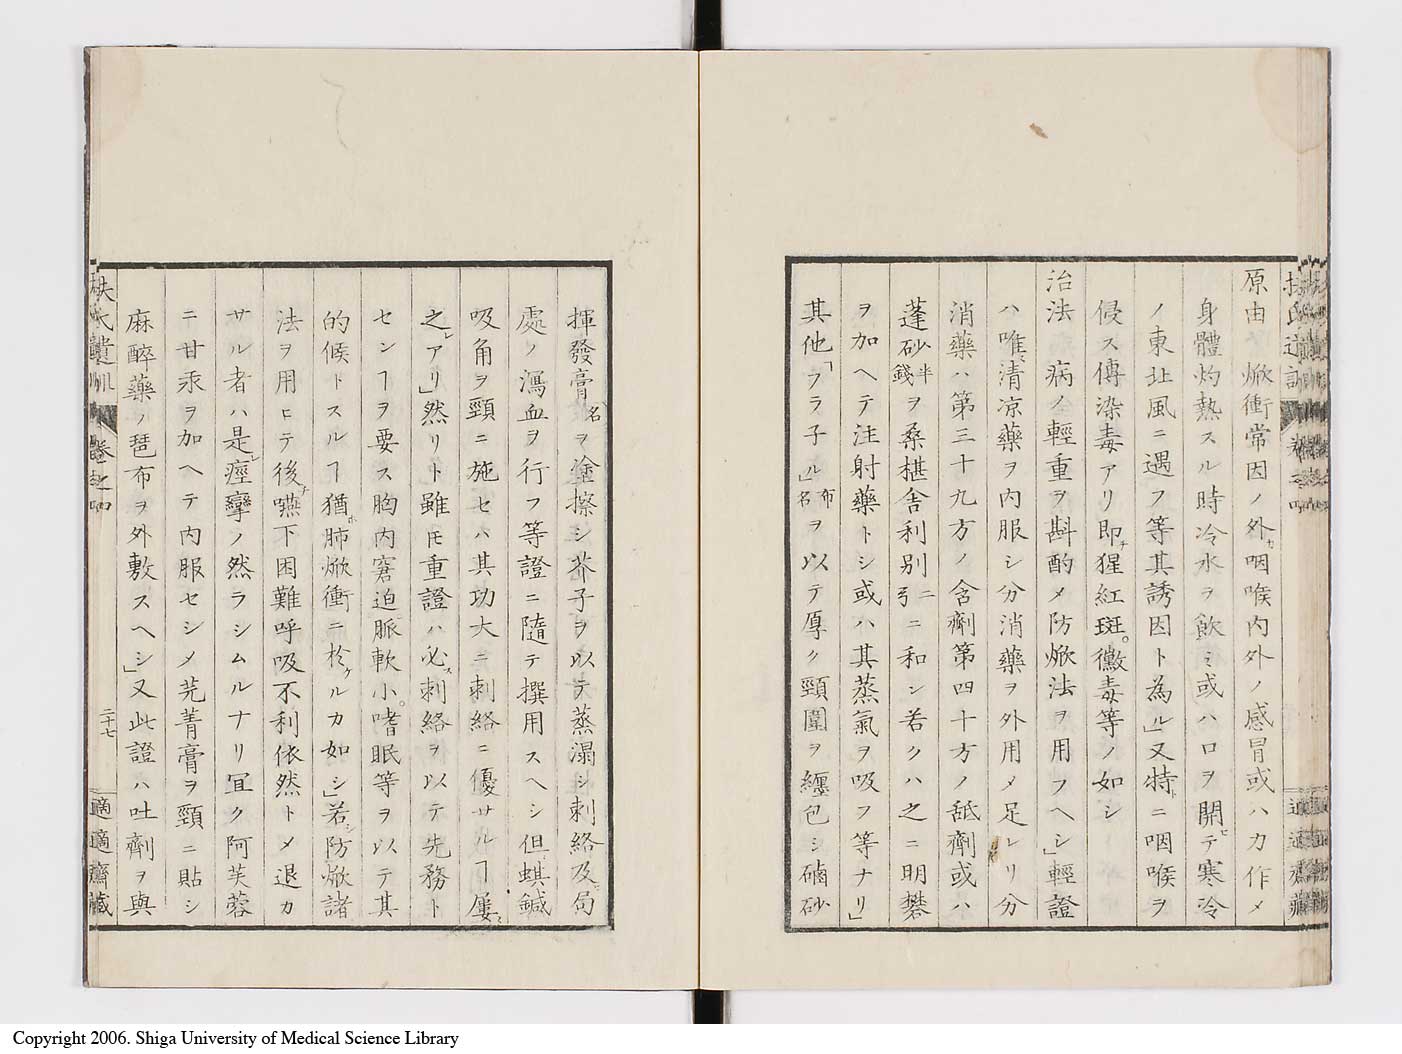 原由 焮衝常因ノ外咽喉内外ノ感冒或ハ力作メ
身體灼熱スル時冷水ヲ飲ミ或ハ口ヲ開テ寒冷
ノ東北風ニ遇フ等其誘因ト為ル」又特ニ咽喉ヲ
侵ス傳染毒アリ即猩紅斑。黴毒等ノ如シ
治法 病ノ輕重ヲ斟酌メ防焮法ヲ用フヘシ」輕證
ハ唯清凉藥ヲ内服シ分消藥ヲ外用メ足レリ分
消藥ハ第三十九方ノ含劑第四十方ノ舐劑或ハ
蓬砂半錢ヲ桑椹舎利別二弓ニ和ン若クハ之ニ明礬
ヲ加ヘテ注射藥トシ或ハ其蒸氣ヲ吸フ等ナリ」
其他「フラ子ル」布名ヲ以テ厚ク頸圍ヲ纏包シ磠砂
揮發膏名ヲ塗擦シ芥子ヲ以テ蒸溻シ刺絡及局
處ノ瀉血ヲ行フ等證ニ隨テ撰用スヘシ但蜞鍼
吸角ヲ頸ニ施セハ其功大ニ刺絡ニ優サルヿ屢
之アリ」然リト雖𪜈重證ハ必刺絡ヲ以テ先務ト
センヿヲ要ス胸内窘迫脈軟小。嗜眠等ヲ以テ其
的候トスルヿ猶肺焮衝ニ於ルカ如シ」若防焮諸
法ヲ用ヒテ後嚥下困難呼吸不利依然トメ退カ
サル者ハ是痙攣ノ然ラシムルナリ冝ク阿芙蓉
ニ甘汞ヲ加ヘテ内服セシメ芫菁膏ヲ頸ニ貼シ
麻醉藥ノ琶布ヲ外敷スヘシ」又此證ハ吐劑ヲ與
扶氏遺訓 卷之四 二十七 適適齋藏
Copyright 2006. Shiga University of Medical Science Library